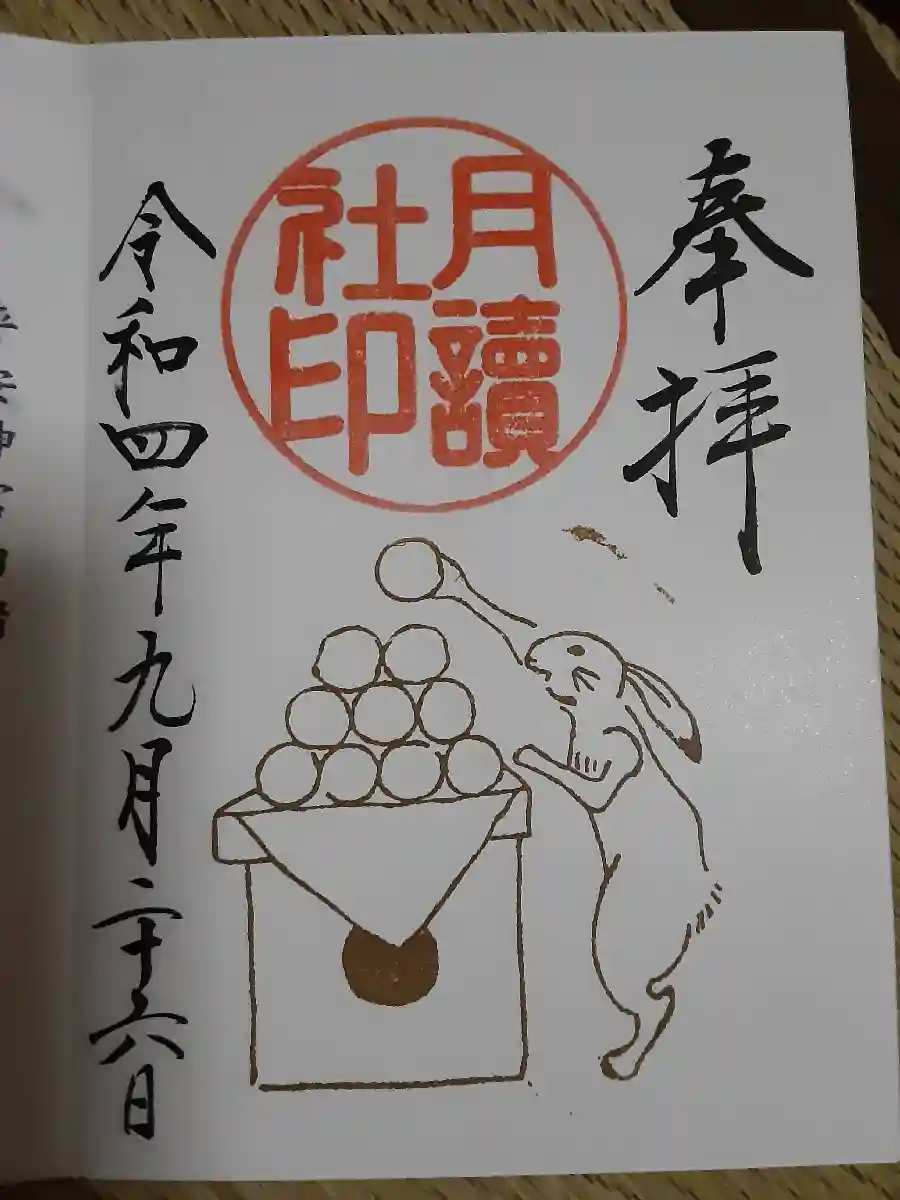 奉拝
月讀
社印
令和四年九月二十六日